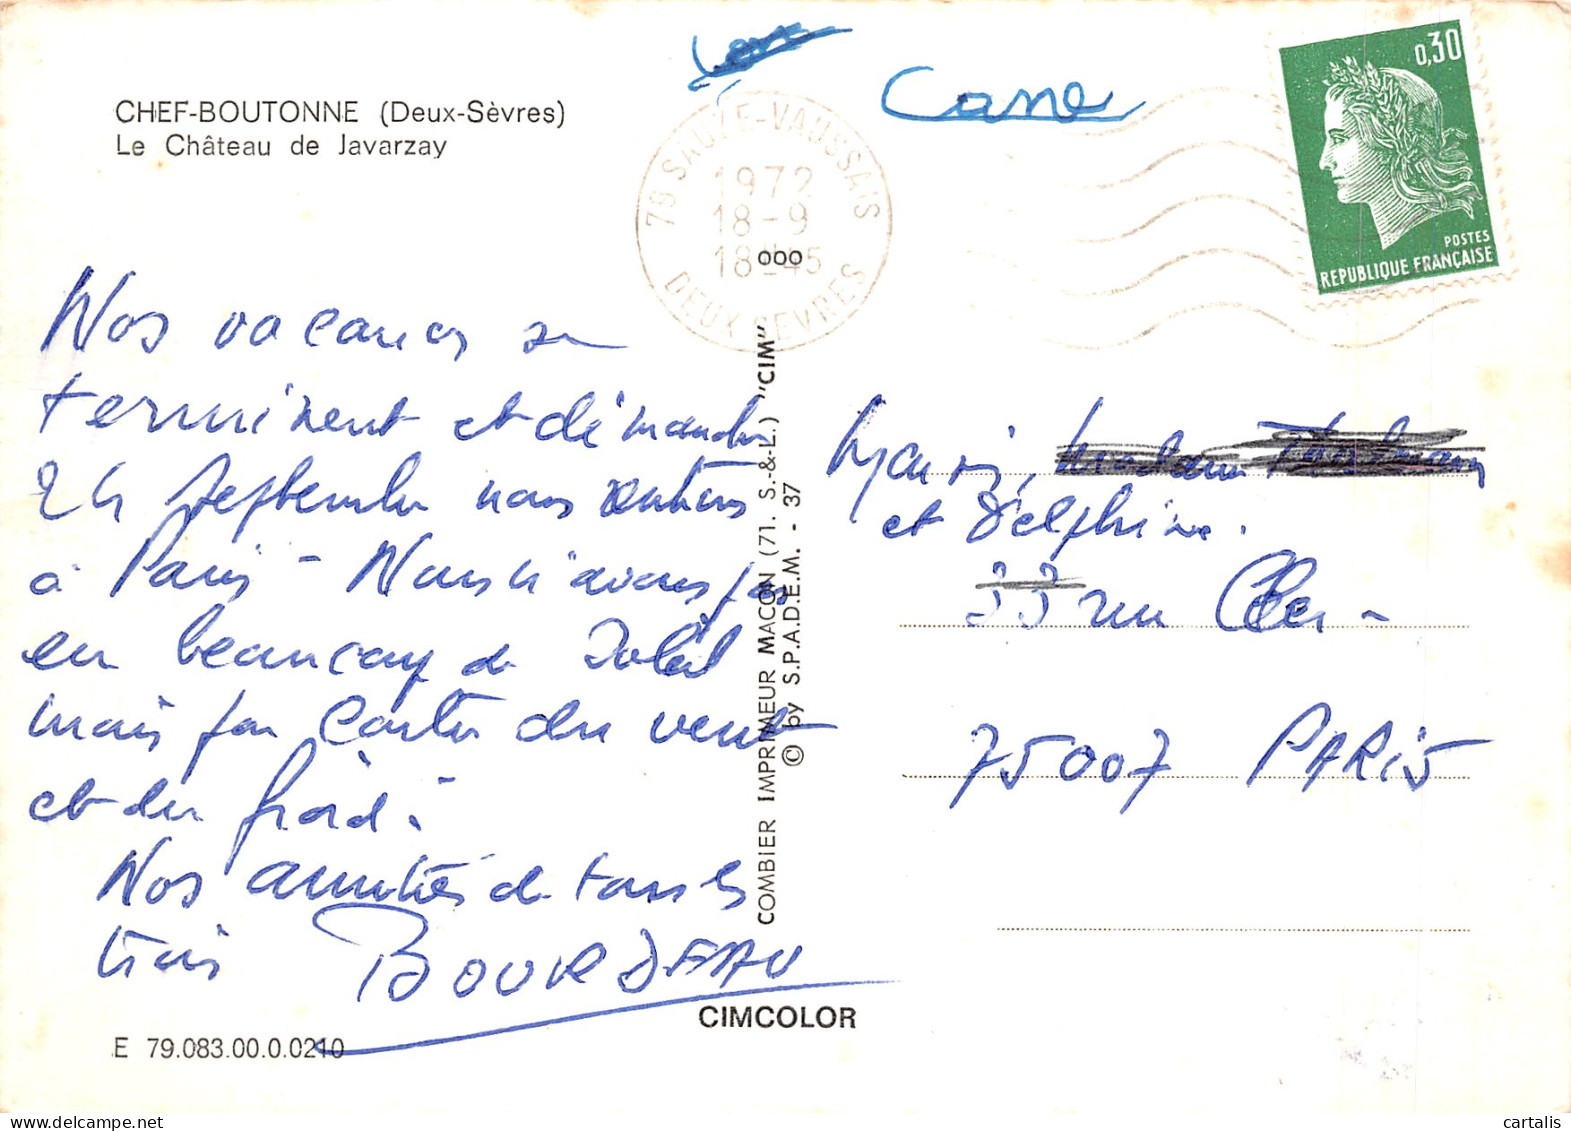 CHEF-BOUTONNE (Deux-Sèvres)
Le Château de Javarzay
Nos vacances se
terminent et dimanche
24 Septembre nous rentrons
à Paris - Nous n'avons pas
eu beaucoup de Soleil
mais par contre du vent
et du froid.
Nos amitiés de tous les
trois BOURDEAU
E 79.083.00.0.0210
CIMCOLOR
COMBIER IMPRIMEUR MACON (71. S.-&-L.) "CIM"
© by S.P.A.D.E.M. - 37
79 SAUZE-VAUSSAIS
1972
18-9
18H45
DEUX SEVRES
000
0,30
POSTES
REPUBLIQUE FRANÇAISE
et Delphine.
33 rue Cler -
75007 PARIS
cartalis